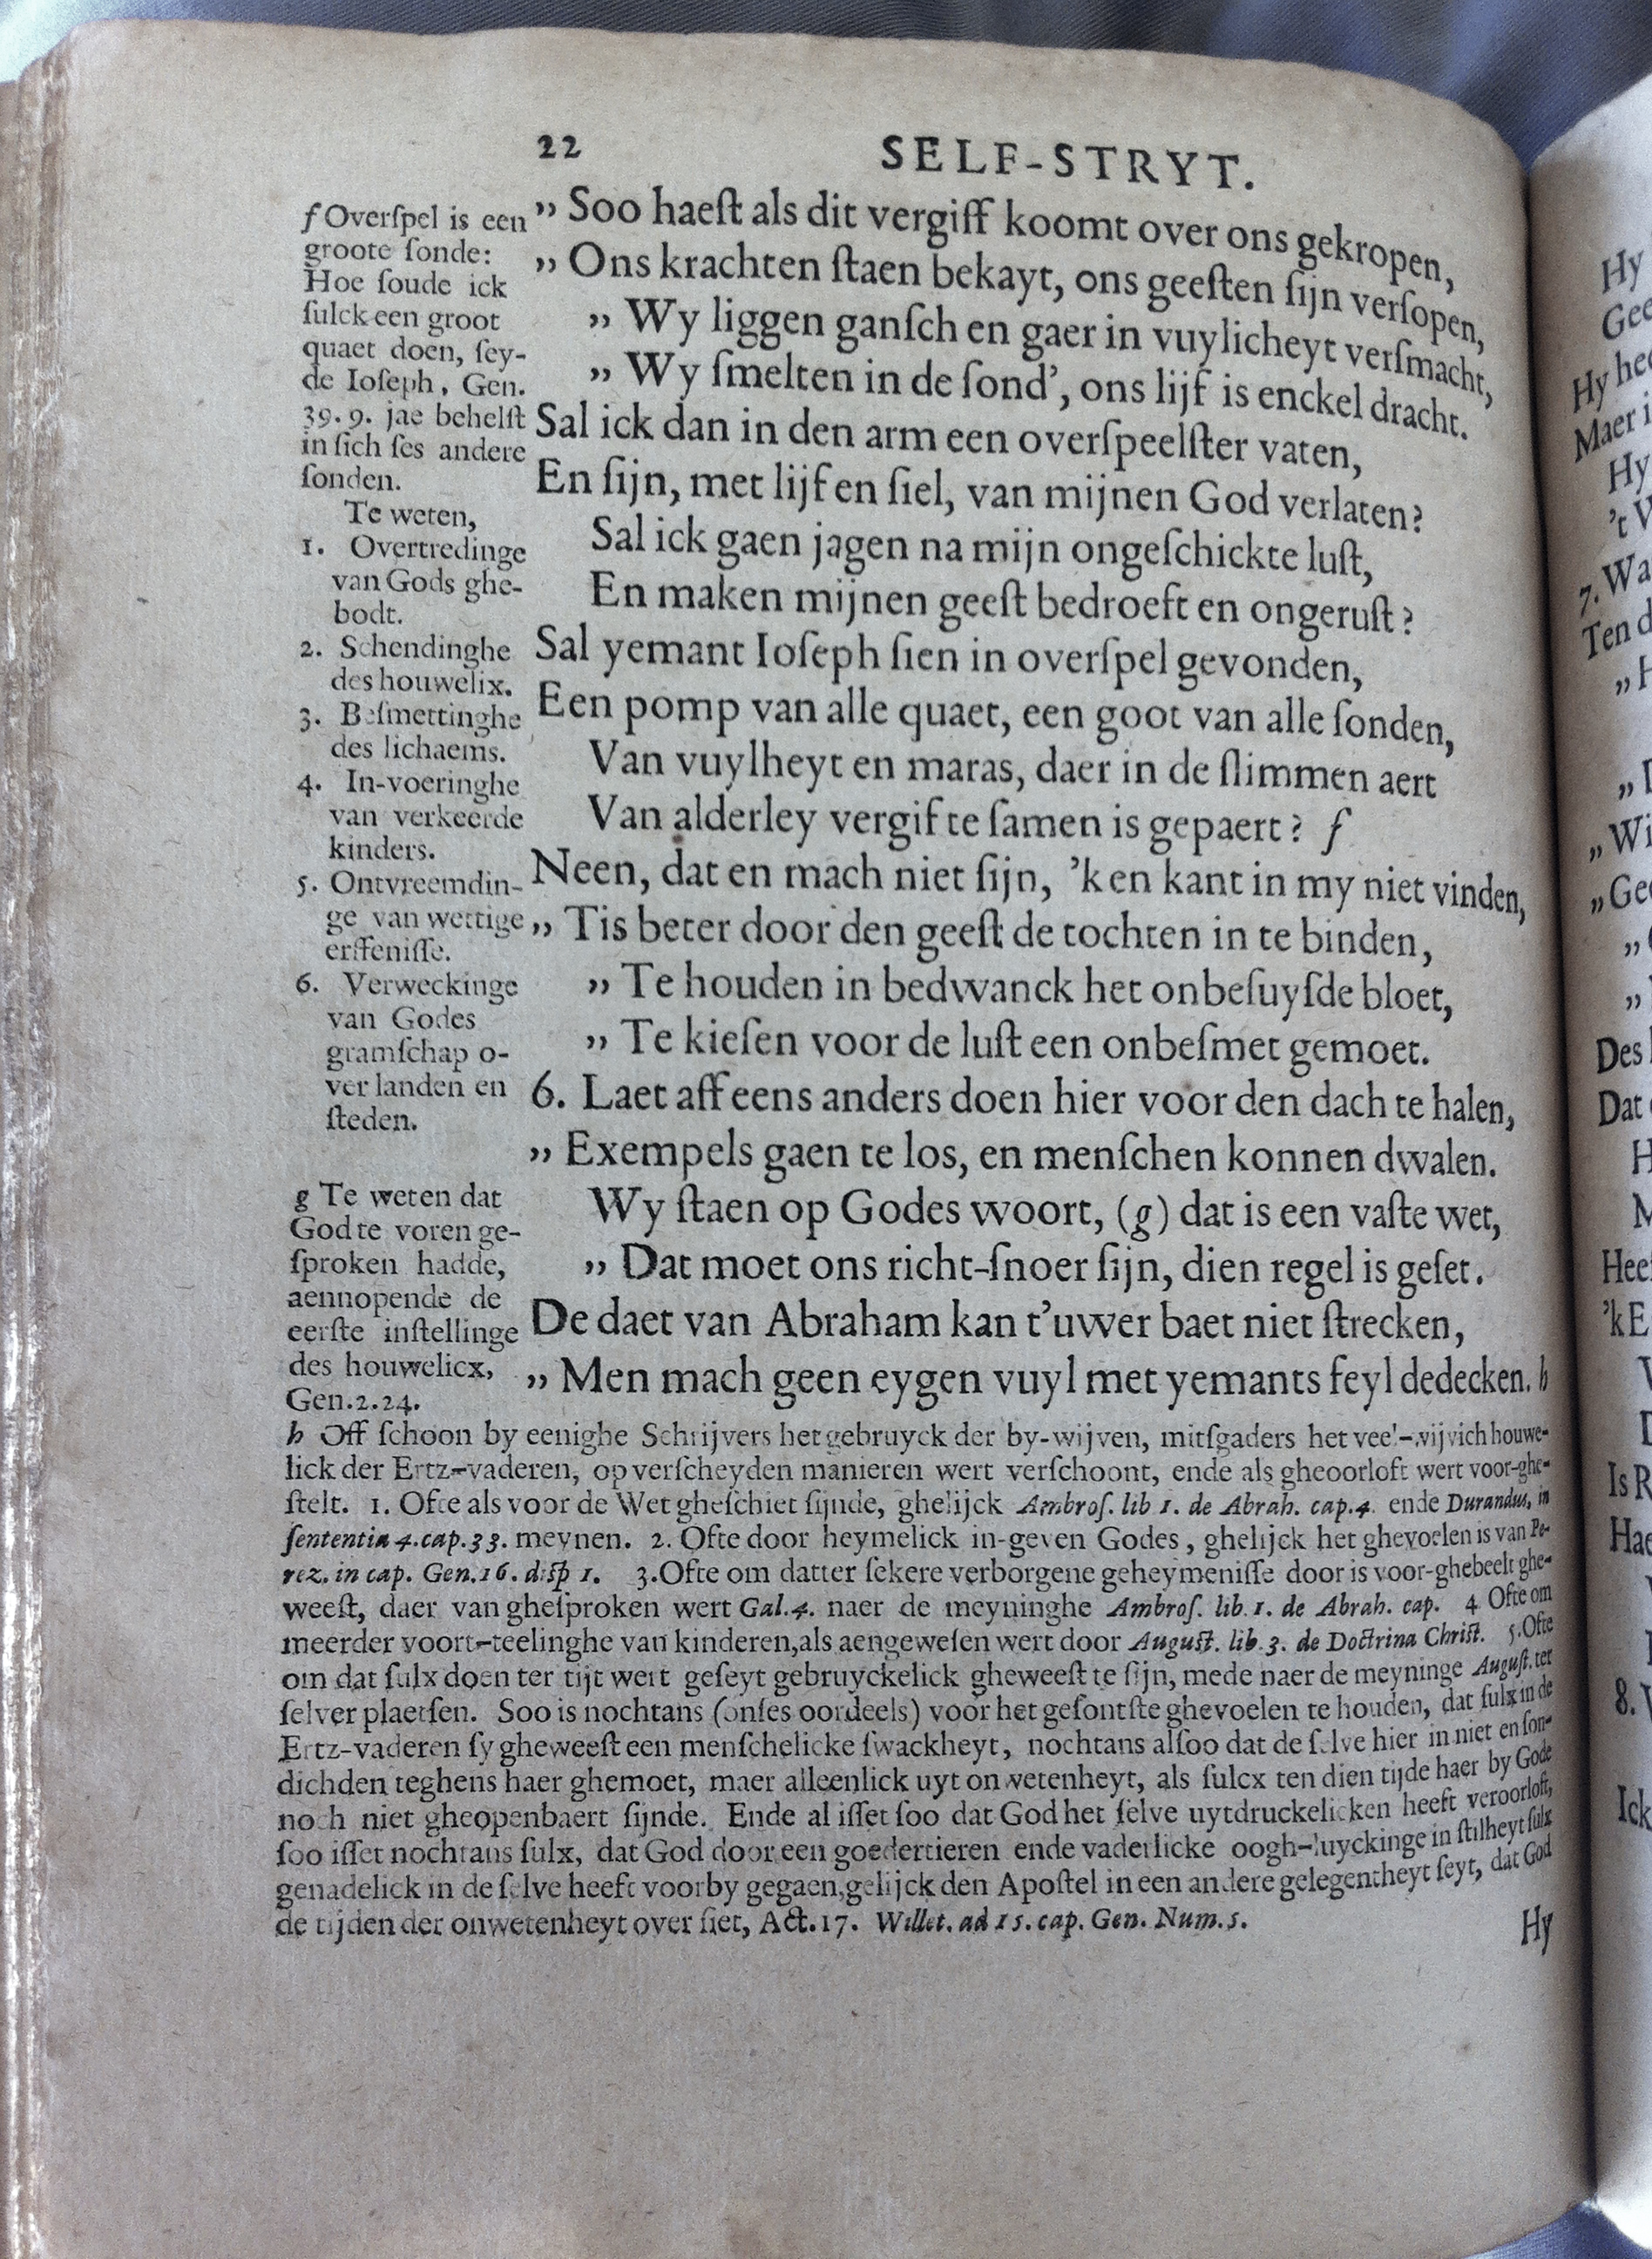 22
SELF-STRYT.
„ Soo haeſt als dit vergiff koomt over ons gekropen,
„ Ons krachten ſtaen bekayt, ons geeſten ſijn verſopen,
„ Wy liggen ganſch en gaer in vuylicheyt verſmacht,
„ Wy ſmelten in de ſond’, ons lijf is enckel dracht.
Sal ick dan in den arm een overſpeelſter vaten,
En ſijn, met lijf en ſiel, van mijnen God verlaten?
Sal ick gaen jagen na mijn ongeſchickte luſt,
En maken mijnen geeſt bedroeft en ongeruſt?
Sal yemant Ioſeph ſien in overſpel gevonden,
Een pomp van alle quaet, een goot van alle ſonden,
Van vuylheyt en maras, daer in de ſlimmen aert
Van alderley vergifte ſamen is gepaert? f
Neen, dat en mach niet ſijn, ’k en kant in my niet vinden,
„ Tis beter door den geeſt de tochten in te binden,
„ Te houden in bedwanck het onbeſuyſde bloet,
„ Te kieſen voor de luſt een onbeſmet gemoet.
6. Laet aff eens anders doen hier voor den dach te halen,
„ Exempels gaen te los, en menſchen konnen dwalen.
Wy ſtaen op Godes woort, (g) dat is een vaſte wet,
„ Dat moet ons richt-ſnoer ſijn, dien regel is geſet.
De daet van Abraham kan t’uwer baet niet ſtrecken,
„ Men mach geen eygen vuyl met yemants feyl dedecken. h
f Overſpel is een
groote ſonde:
Hoe ſoude ick
ſulck een groot
quaet doen, ſey-
de Ioſeph, Gen.
39. 9. jae behelſt
in ſich ſes andere
ſonden.
Te weten,
1. Overtredinge
van Gods ghe-
bodt.
2. Schendinghe
des houwelix.
3. Beſmettinghe
des lichaems.
4. In-voeringhe
van verkeerde
kinders.
5. Ontvreemdin-
ge van wettige
erffeniſſe.
6. Verweckinge
van Godes
gramſchap o-
ver landen en
ſteden.
g Te weten dat
God te voren ge-
ſproken hadde,
aennopende de
eerſte inſtellinge
des houwelicx,
Gen. 2. 24.
h Off ſchoon by eenighe Schrijvers het gebruyck der by-wijven, mitſgaders het veel-wijvich houwe-
lick der Ertz-vaderen, op verſcheyden manieren wert verſchoont, ende als gheoorloft wert voor-ghe-
ſtelt. 1. Ofte als voor de Wet gheſchiet ſijnde, ghelijck Ambroſ. lib 1. de Abrah. cap. 4. ende Durandus, in
ſententia 4. cap. 33. meynen. 2. Ofte door heymelick in-geven Godes, ghelijck het ghevoelen is van Pe-
rez. in cap. Gen. 16. diſp 1. 3. Ofte om datter ſekere verborgene geheymeniſſe door is voor-ghebeelt ghe-
weeſt, daer van gheſproken wert Gal. 4. naer de meyninghe Ambroſ. lib. 1. de Abrah. cap. 4 Ofte om
meerder voort-teelinghe van kinderen, als aengeweſen wert door Auguſt. lib. 3. de Doctrina Chriſt. 5. Ofte
om dat ſulx doen ter tijt wert geſeyt gebruyckelick gheweeſt te ſijn, mede naer de meyninge Auguſt. ter
ſelver plaetſen. Soo is nochtans (onſes oordeels) voor het geſontſte ghevoelen te houden, dat ſulx in de
Ertz-vaderen ſy gheweeſt een menſchelicke ſwackheyt, nochtans alſoo dat de ſelve hier in niet en ſon-
dichden teghens haer ghemoet, maer alleenlick uyt onwetenheyt, als ſulcx ten dien tijde haer by Gode
noch niet gheopenbaert ſijnde. Ende al iſſet ſoo dat God het ſelve uytdruckelicken heeft veroorloft,
ſoo iſſet nochtans ſulx, dat God door een goedertieren ende vaderlicke oogh-luyckinge in ſtilheyt ſulx
genadelick in de ſelve heeft voorby gegaen, gelijck den Apoſtel in een andere gelegentheyt ſeyt, dat God
de tijden der onwetenheyt over ſiet, Act. 17. Willet. ad 15. cap. Gen. Num. 5.
Hy